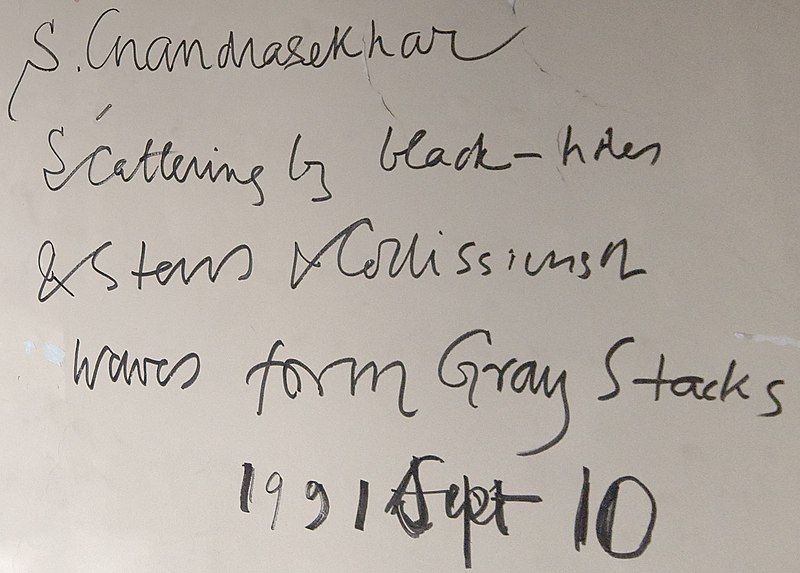 S. Chandrasekhar
Scattering by black-holes
& Stars & Collissions of
waves form Gray Stacks
1991 Sept 10